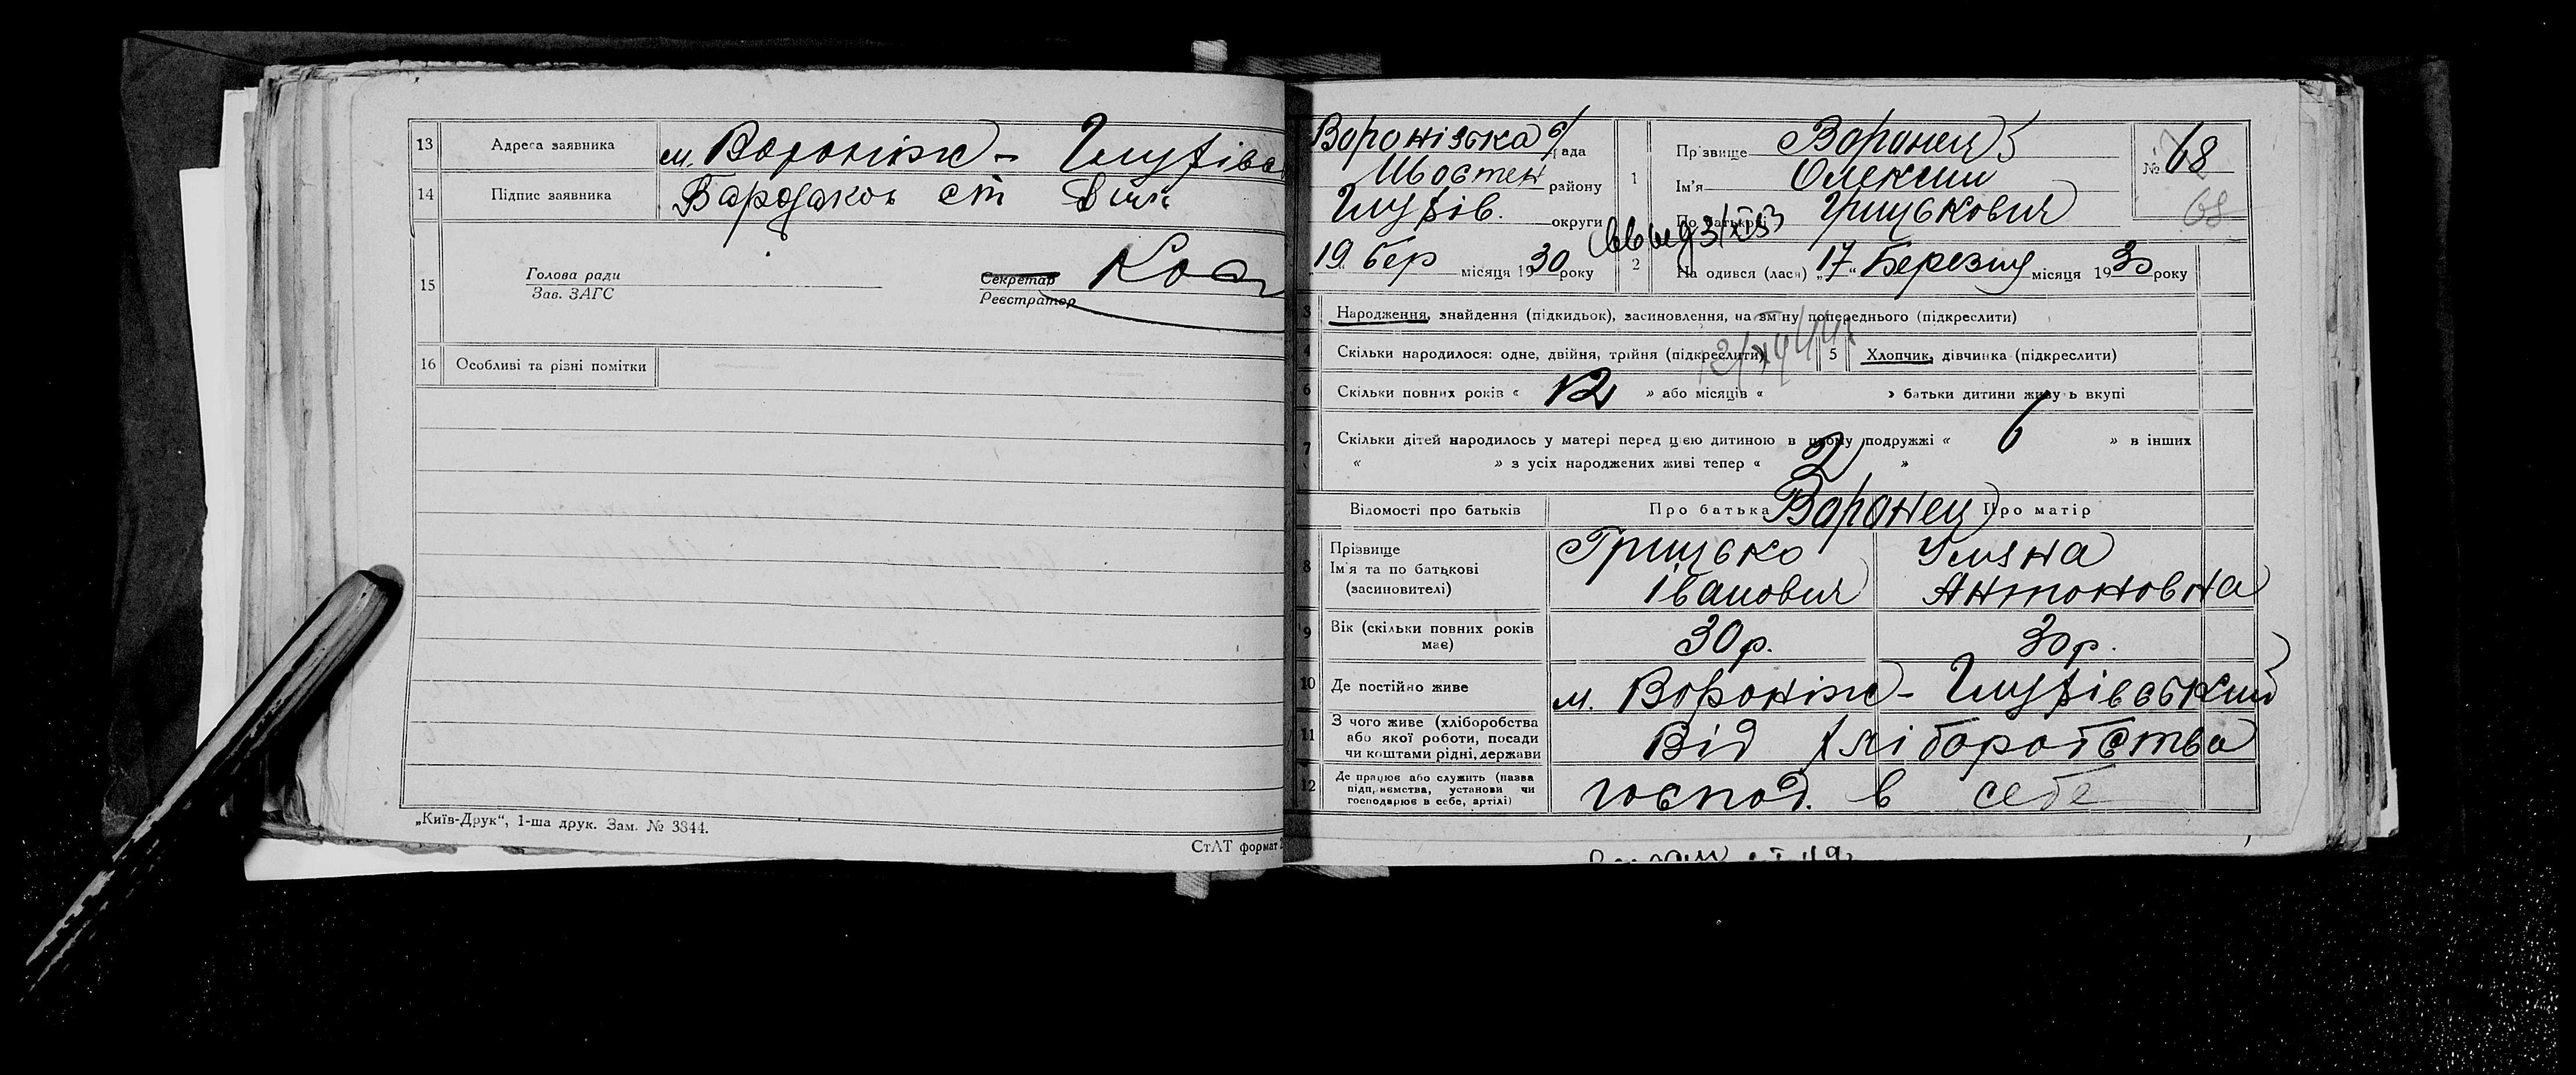 13 Адреса заявника м. Вороніж - Глухівс
14 Підпис заявника
15 Голова ради
Зав. ЗАГС
Секретар
Реєстратор
16 Особливі та різні помітки
„Київ-Друк“, 1-ша друк. Зам. № 3844.
СтАТ формат
Вороніська с/рада
Шостен району
Глухів. округи
19 бер місяця 1930 року
1 Прізвище Воронец
Ім'я Олексій
По батькові Грицькович
№ 68
68
2 Народився (лася) „17“ Березня місяця 1930 року
3 Народження, знайдення (підкидьок), засиновлення, на зміну попереднього (підкреслити)
4 Скільки народилося: одне, двійня, трійня (підкреслити) 5 Хлопчик, дівчинка (підкреслити)
6 Скільки повних років « 12 » або місяців « » батьки дитини живуть вкупі
7 Скільки дітей народилось у матері перед цією дитиною в цьому подружжі « 6 » в інших
« » з усіх народжених живі тепер « 2 »
Відомості про батьків Про батька Про матір
Воронец
8 Прізвище
Ім'я та по батькові
(засиновителі)
Грицько Уляна
Іванович Антоновна
9 Вік (скільки повних років має) 30 р. 30 р.
10 Де постійно живе м. Вороніж - Глухівський
11 З чого живе (хліборобства
або якої роботи, посади
чи коштами рідні, держави
Від хліборобства
12 Де працює або служить (назва
підприємства, установи чи
господарює в себе, артілі)
господ. в себе